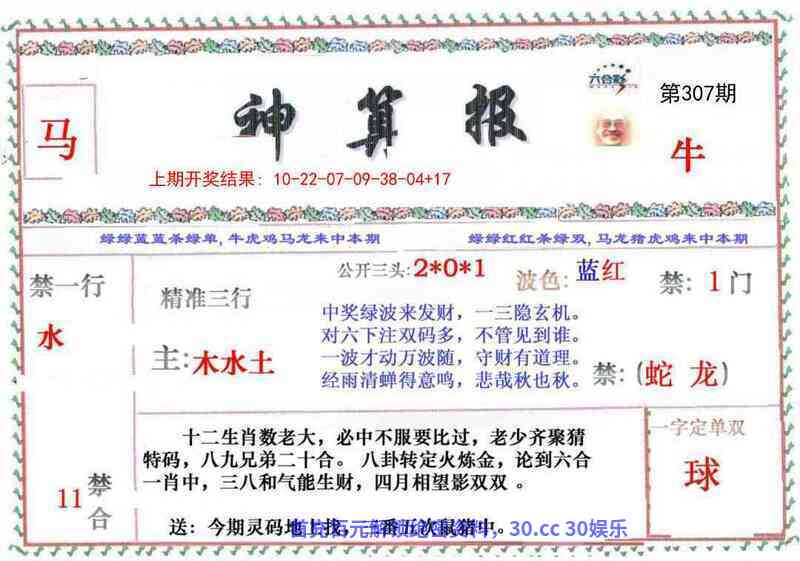 六合彩
第307期
马
神算报
牛
上期开奖结果: 10-22-07-09-38-04+17
绿绿蓝蓝杀绿单, 牛虎鸡马龙来中本期
绿绿红红杀绿双, 马龙猪虎鸡来中本期
禁一行
水
精准三行
主:木水土
公开三头:2*0*1
波色:蓝红
禁: 1门
中奖绿波来发财，一三隐玄机。
对六下注双码多，不管见到谁。
一波才动万波随，守财有道理。
经雨清蝉得意鸣，悲哉秋也秋。
禁:(蛇 龙)
十二生肖数老大，必中不服要比过，老少齐聚猜
特码，八九兄弟二十合。 八卦转定火炼金，论到六合
一肖中，三八和气能生财，四月相望影双双 。
送：今期灵码地上找，
番五次鼠猪中。
30.cc 30娱乐
11
禁合
一字定单双
球